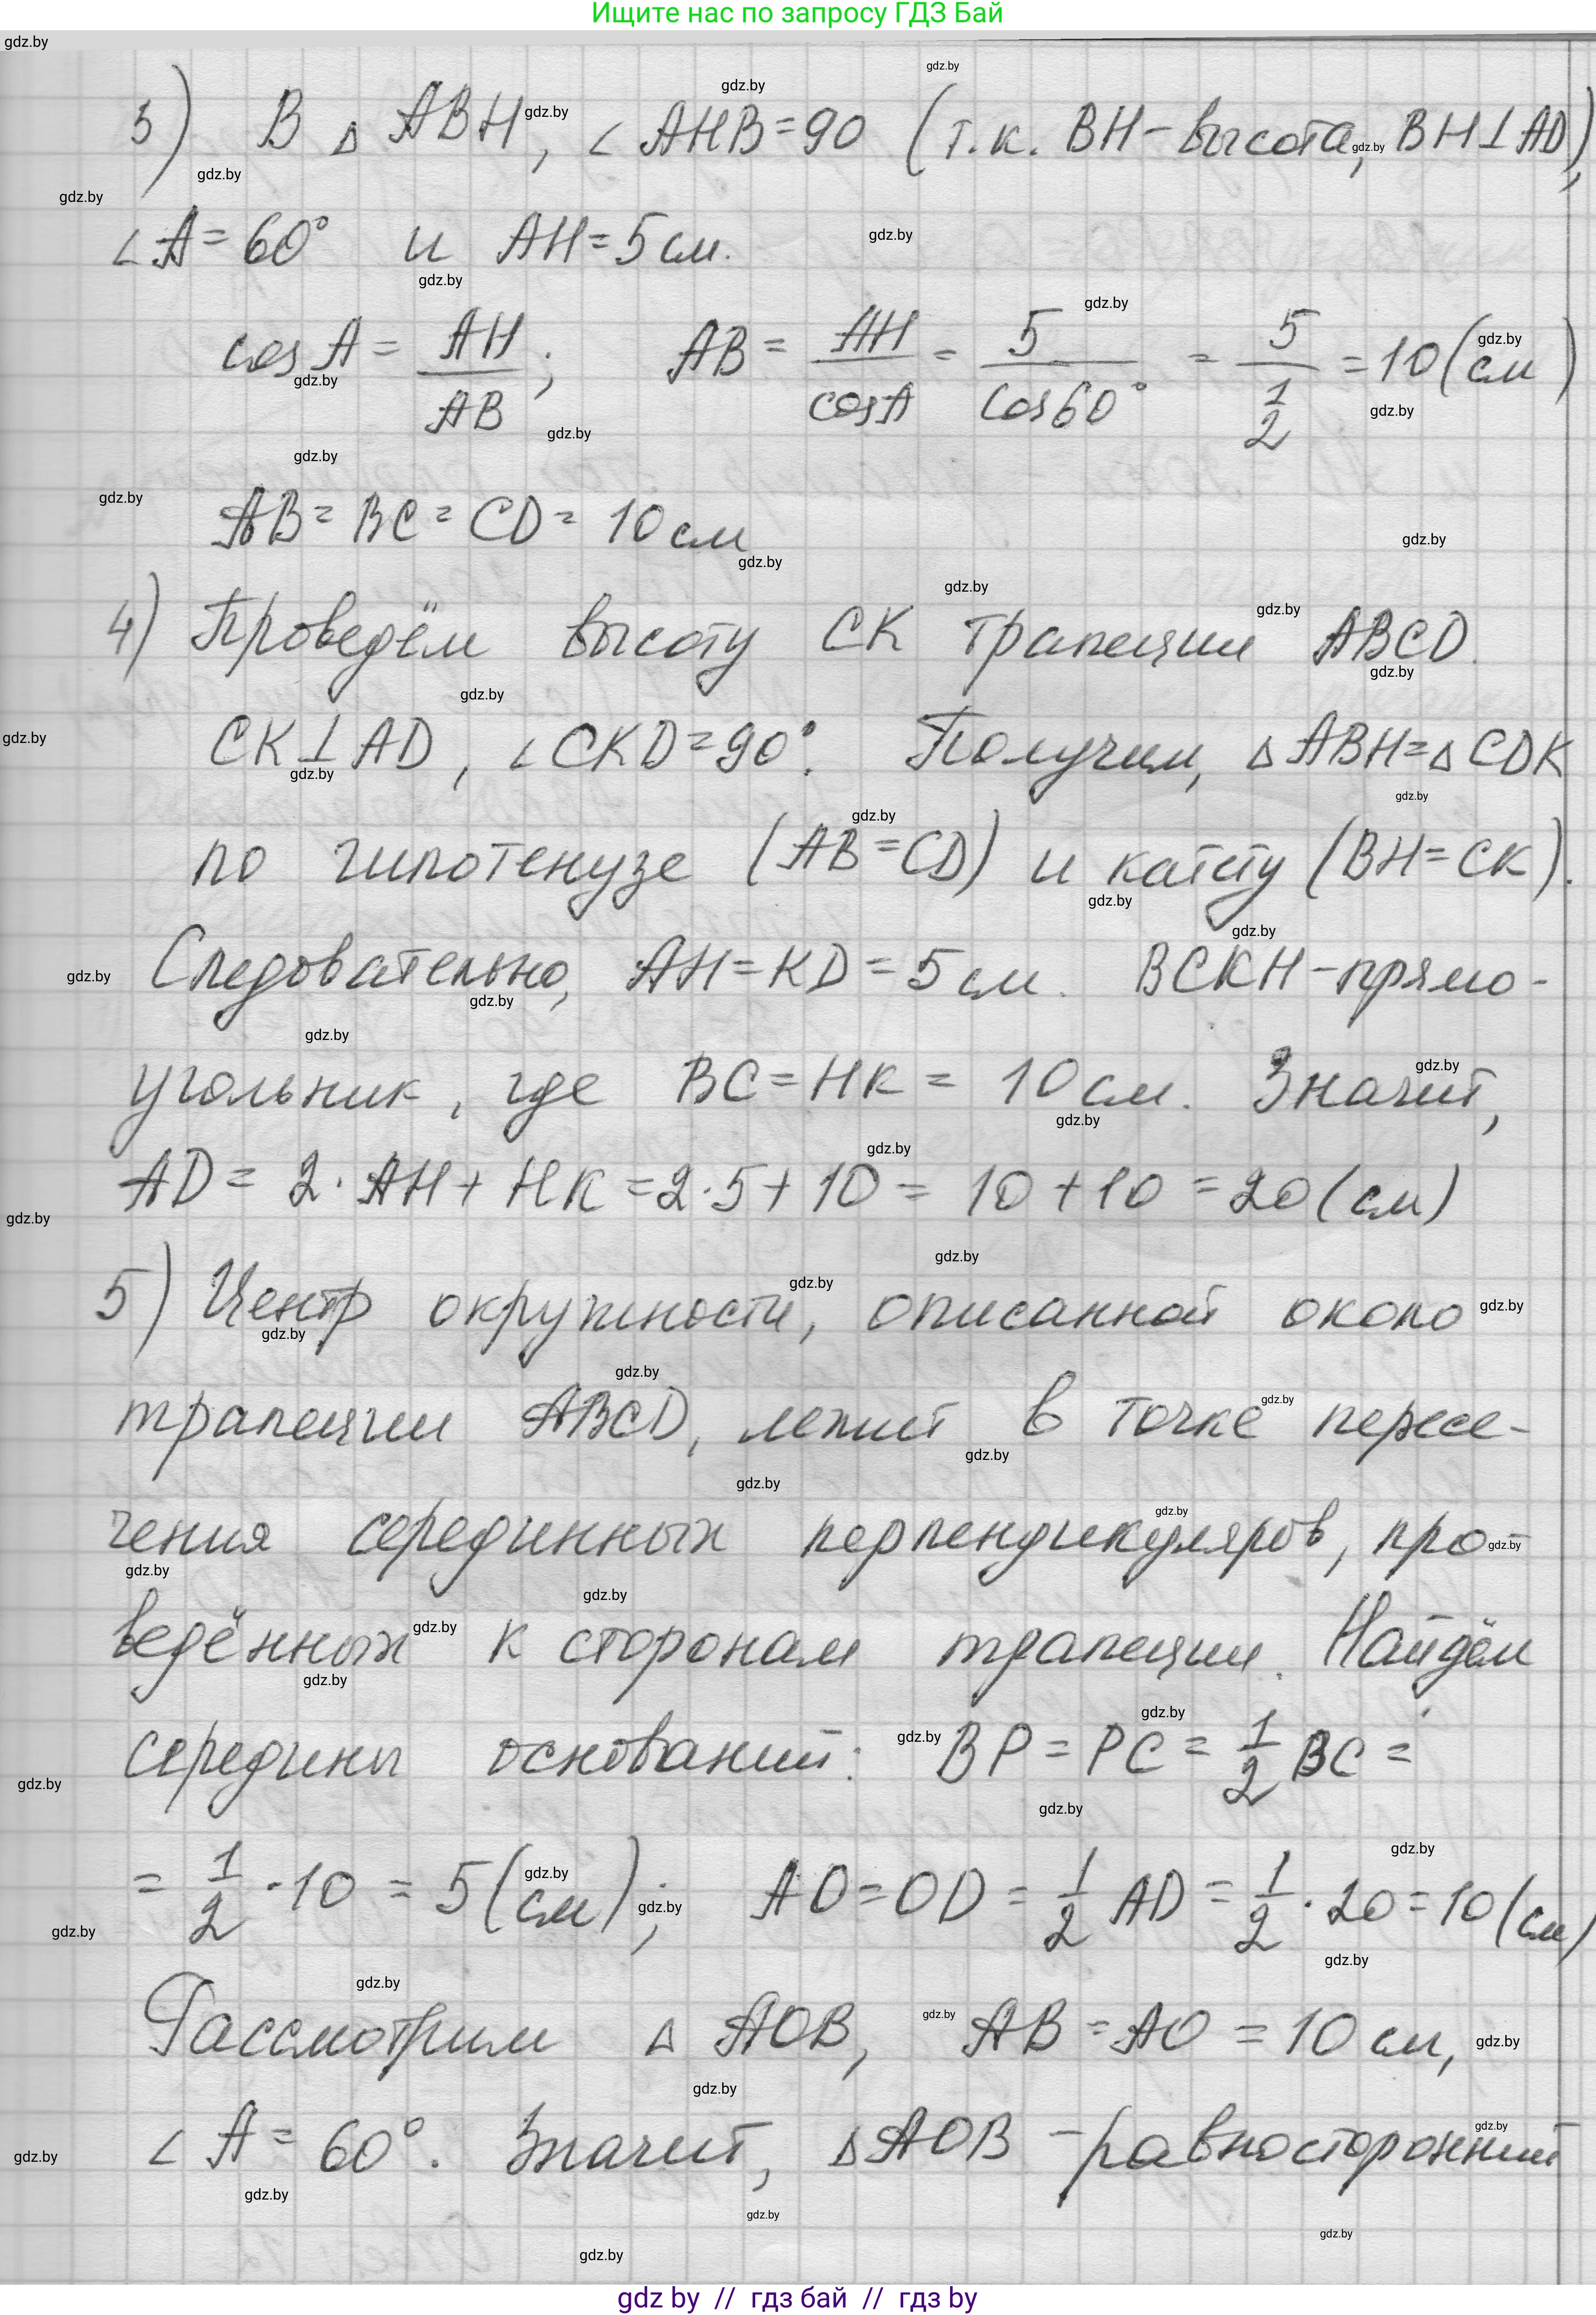 Ищите нас по запросу ГДЗ Бай
3) В △ ABH, ∠ AHB=90 (т.к. BH-высота, BH⊥AD),
∠A=60° и AH=5см.
cos A = AH/AB; AB = AH/cosA = 5/cos60° = 5/(1/2) = 10(см)
AB=BC=CD=10см
4) Проведём высоту CK трапеции ABCD.
CK⊥AD, ∠CKD=90°. Получим, △ABH=△CDK
по гипотенузе (AB=CD) и катету (BH=CK).
Следовательно, AH=KD=5см. BCKH-прямо-
угольник, где BC=HK=10см. Значит,
AD= 2·AH+HK=2·5+10=10+10=20(см)
5) Центр окружности, описанной около
трапеции ABCD, лежит в точке пересе-
чения серединных перпендикуляров, про-
ведённых к сторонам трапеции. Найдём
середины оснований: BP=PC=1/2 BC=
= 1/2·10=5(см); AO=OD=1/2 AD=1/2·20=10(см)
Рассмотрим △ AOB, AB=AO=10см,
∠A=60°. Значит, △AOB-равносторонний
gdz by // гдз бай // гдз by